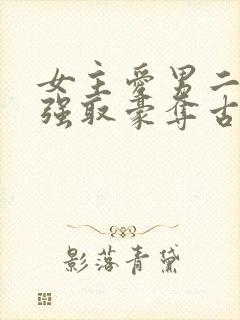 女主愛男二
强取豪奪古
影落青黛